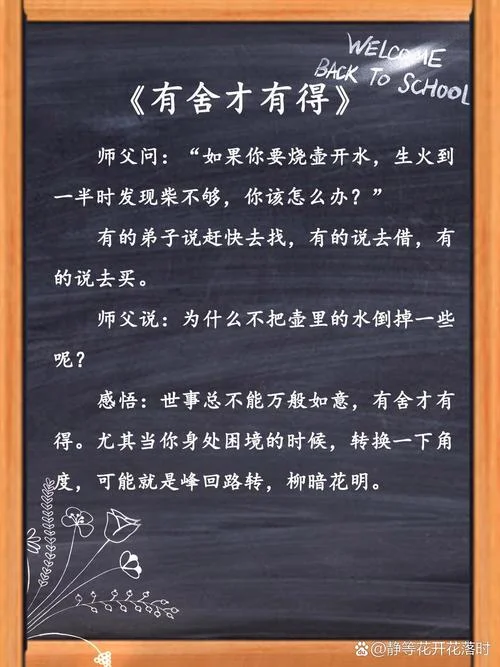 WELCOME
BACK TO SCHOOL
《有舍才有得》
师父问：“如果你要烧壶开水，生火到
一半时发现柴不够，你该怎么办？”
有的弟子说赶快去找，有的说去借，有
的说去买。
师父说：为什么不把壶里的水倒掉一些
呢？
感悟：世事总不能万般如意，有舍才有
得。尤其当你身处困境的时候，转换一下角
度，可能就是峰回路转，柳暗花明。
@静等花开花落时